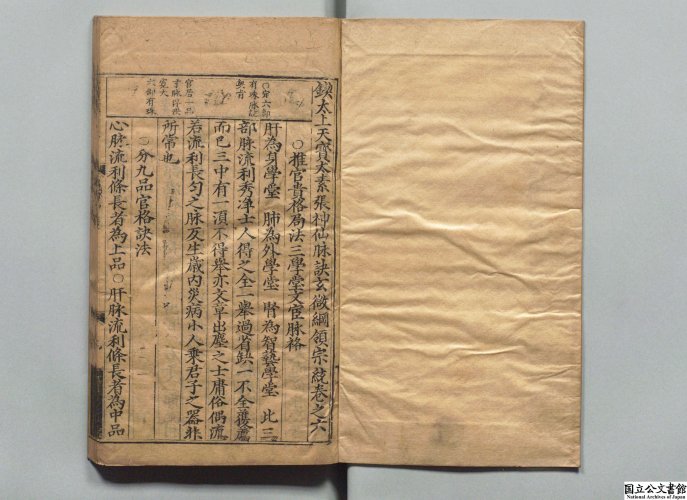 鍥太上天寶太素張神仙脉訣玄微綱領宗統卷之六
○推官貴格局法三學堂文宦脉格
肝為身學堂 肺為外學堂 腎為智藝學堂 比三
部脉流利秀净士人得之全二舉過省缺一不全獲薦
而已三中有一湏不得舉亦文章出塵之士庸俗偶流
若流利長匀之脉反生歳内災病小人乗君子之器非
所常也
○分九品官格訣法
心脉流利條長者為上品○肝脉流利條長者為中品
○分六部
有珠
無肓
官居一品
寸脉
寛大
六部有珠
国立公文書館
National Archives of Japan